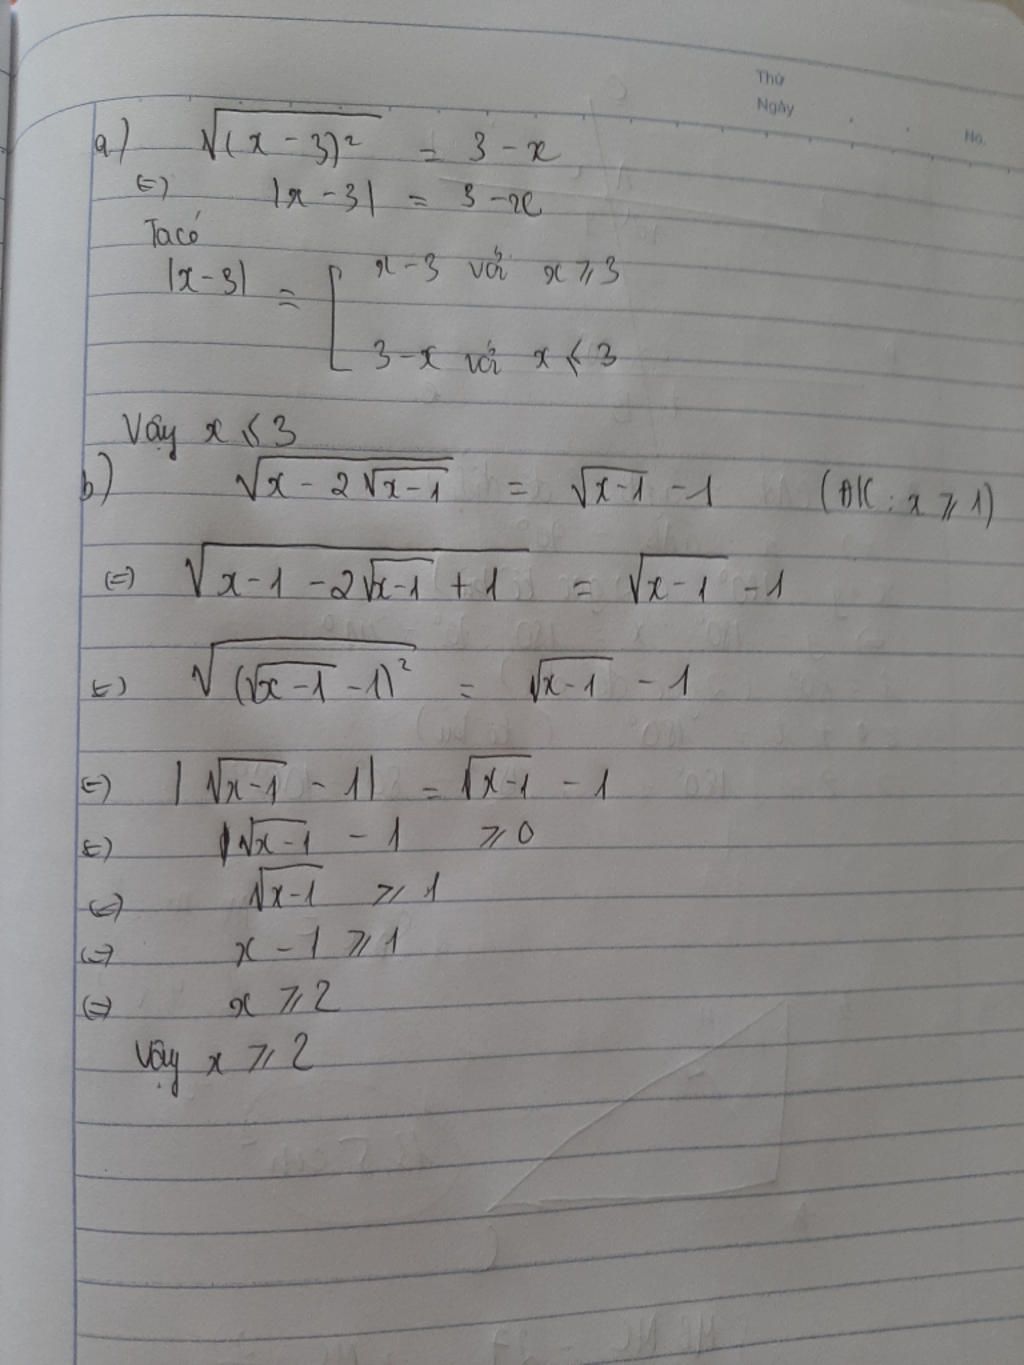 Thứ
Ngày
No.
a) √(x - 3)² = 3 - x
(=) |x - 3| = 3 - x
Ta có
|x - 3| = [ x - 3 với x ⩾ 3
3 - x với x ⩽ 3
Vậy x ⩽ 3
b) √(x - 2√(x-1)) = √(x-1) - 1 (ĐK : x ⩾ 1)
(=) √(x - 1 - 2√(x-1) + 1) = √(x-1) - 1
(=) √((√(x-1) - 1)²) = √(x-1) - 1
(=) |√(x-1) - 1| = √(x-1) - 1
(=) √(x-1) - 1 ⩾ 0
(=) √(x-1) ⩾ 1
(=) x - 1 ⩾ 1
(=) x ⩾ 2
Vậy x ⩾ 2